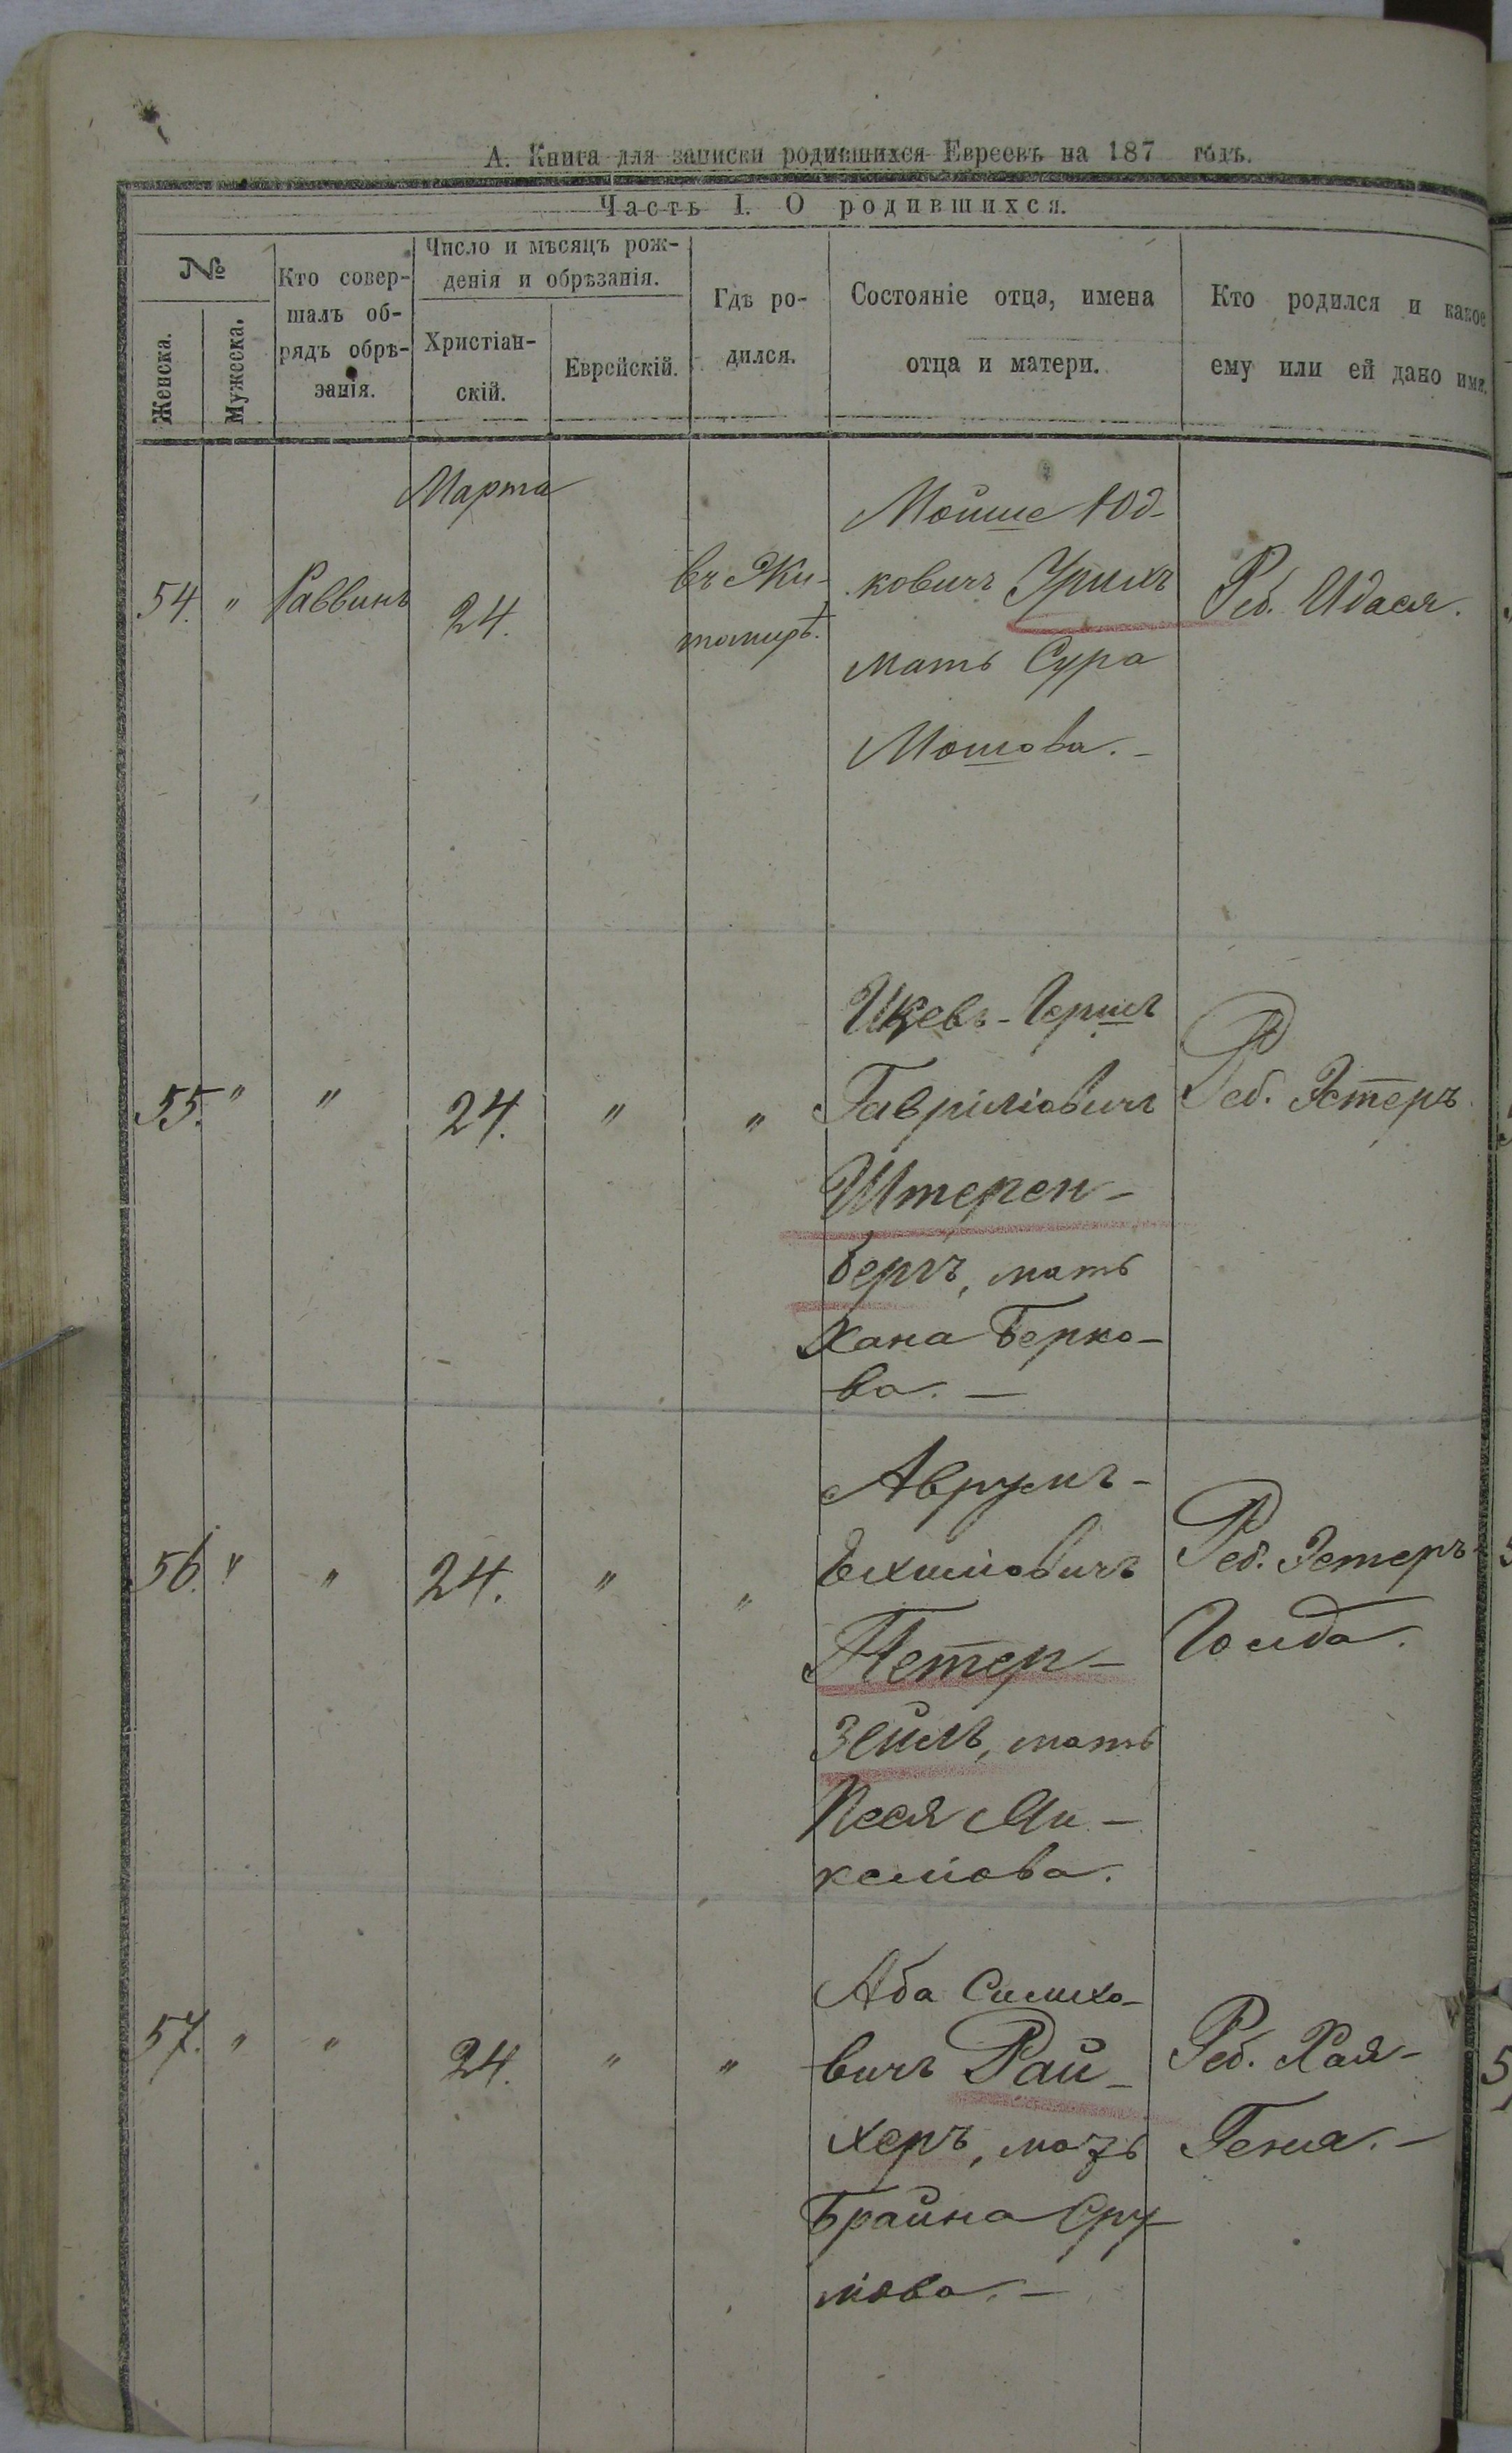 А. Книга для записки родившихся Евреевъ на 187 годъ.
Часть I. О родившихся.
№
Женска.
Мужеска.
Кто совер-
шалъ об-
рядъ обрѣ-
занія.
Число и мѣсяцъ рож-
денія и обрѣзанія.
Христіан-
скій.
Еврейскій.
Гдѣ ро-
дился.
Состояніе отца, имена
отца и матери.
Кто родился и какое
ему или ей дано имя.
54. " Раввинъ
Марта
24.
въ Жи-
томирѣ.
Мойше Юд-
ковичъ
мать Сура
Мошова. -
Реб. Идася.
55. " " 24. " "
Гершъ
Гавриліовичъ
Штерен-
бергъ, мать
Хана Берко-
ва. —
Реб. Эстеръ
56. " " 24. " "
Аврумъ-
Петер-
зейлъ, мать
Песя Ми-
хеліова.
Реб. Эстеръ
Голда.
57. " " 24. " "
Аба Симхо-
вичъ Рай-
херъ, мать
Брайна Сру
лiова. —
Реб. Хая-
Геня. —